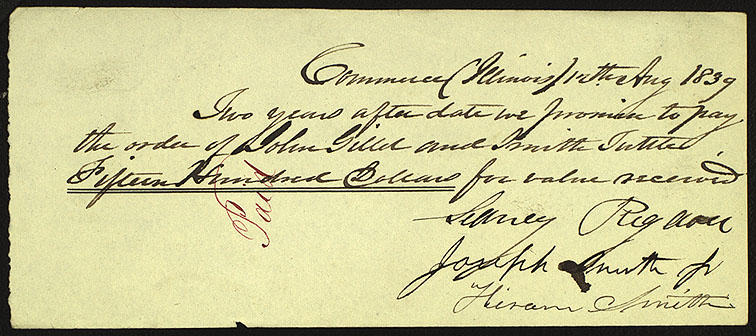 Commerce (Illinois) 12th Aug 1839
Two years after date we promise to pay
the order of John Gillet and Smith Tuttle
Fifteen Hundred Dollars for value received
Paid
Sidney Rigdon
Joseph Smith Jr
Hiram Smith